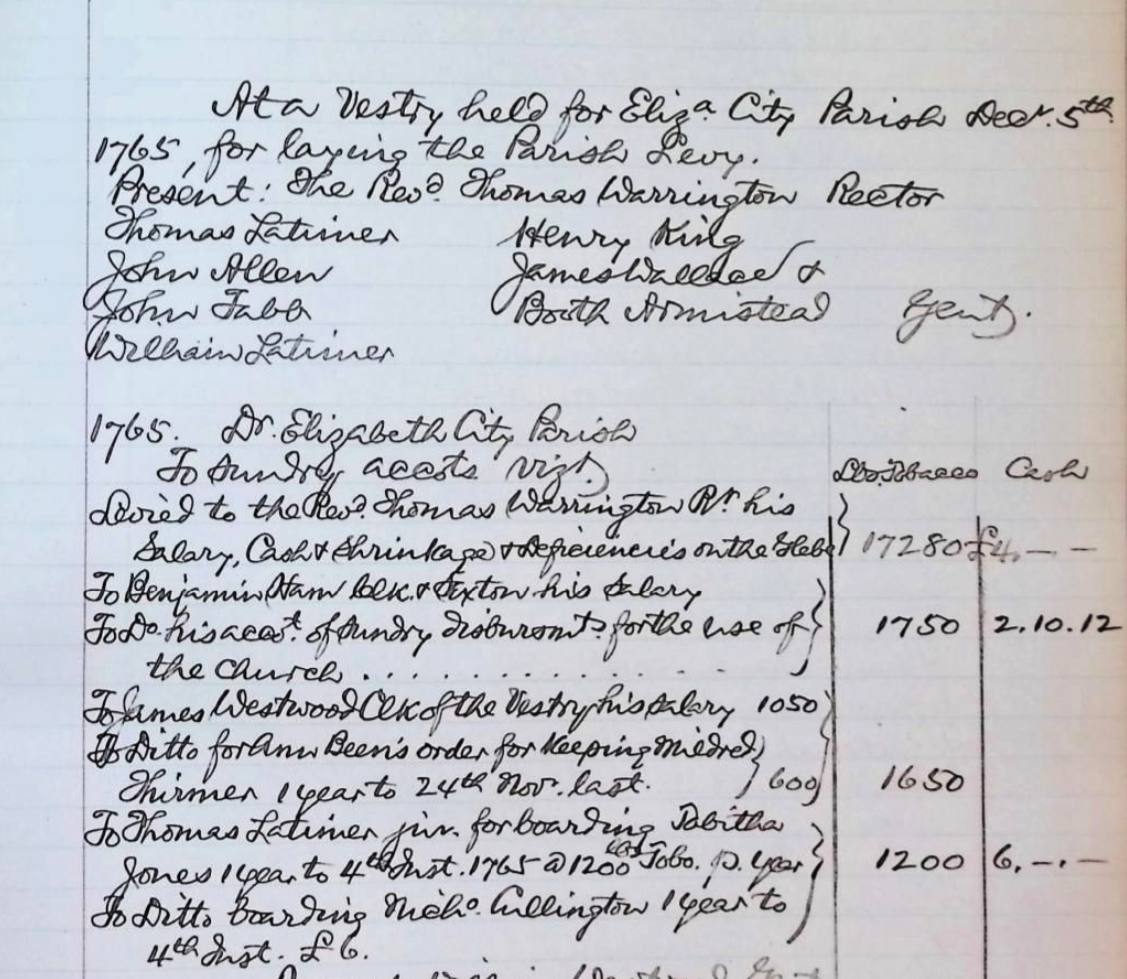 At a Vestry held for Eliz.a City Parish Decr. 5th
1765, for laying the Parish Levy.
Present: The Revd. Thomas Warrington Rector
Thomas Latimer Henry King
John Allen James Wallace &
John Tabb Booth Armistead Gent.
William Latimer
1765. Dr. Elizabeth City Parish
To Sundry accots vizt.) Lbs. Tobacco Cash
Levied to the Revd. Thomas Warrington Rr. his
Salary, Cash & Shrinkage & Deficiencies on the Glebe 17280 £4. — —
To Benjamin Ham Clk. & Sexton his Salary
To Do. his accot. of Sundry disbursmts. for the use of 1750 2.10.12
the Church . . . . . . . . . . . .
To James Westwood Clk of the Vestry his Salary 1050
To Ditto for Ann Been's order for Keeping Mildred
1 year to 24th Nov. last. 600 1650
To Thomas Latimer jun. for boarding Tabitha
Jones 1 year to 4th Inst. 1765 @ 1200 lbs Tobo. p. year 1200 6. -. -
To Ditto boarding Nicho. Cullington 1 year to
4th Inst. £6.